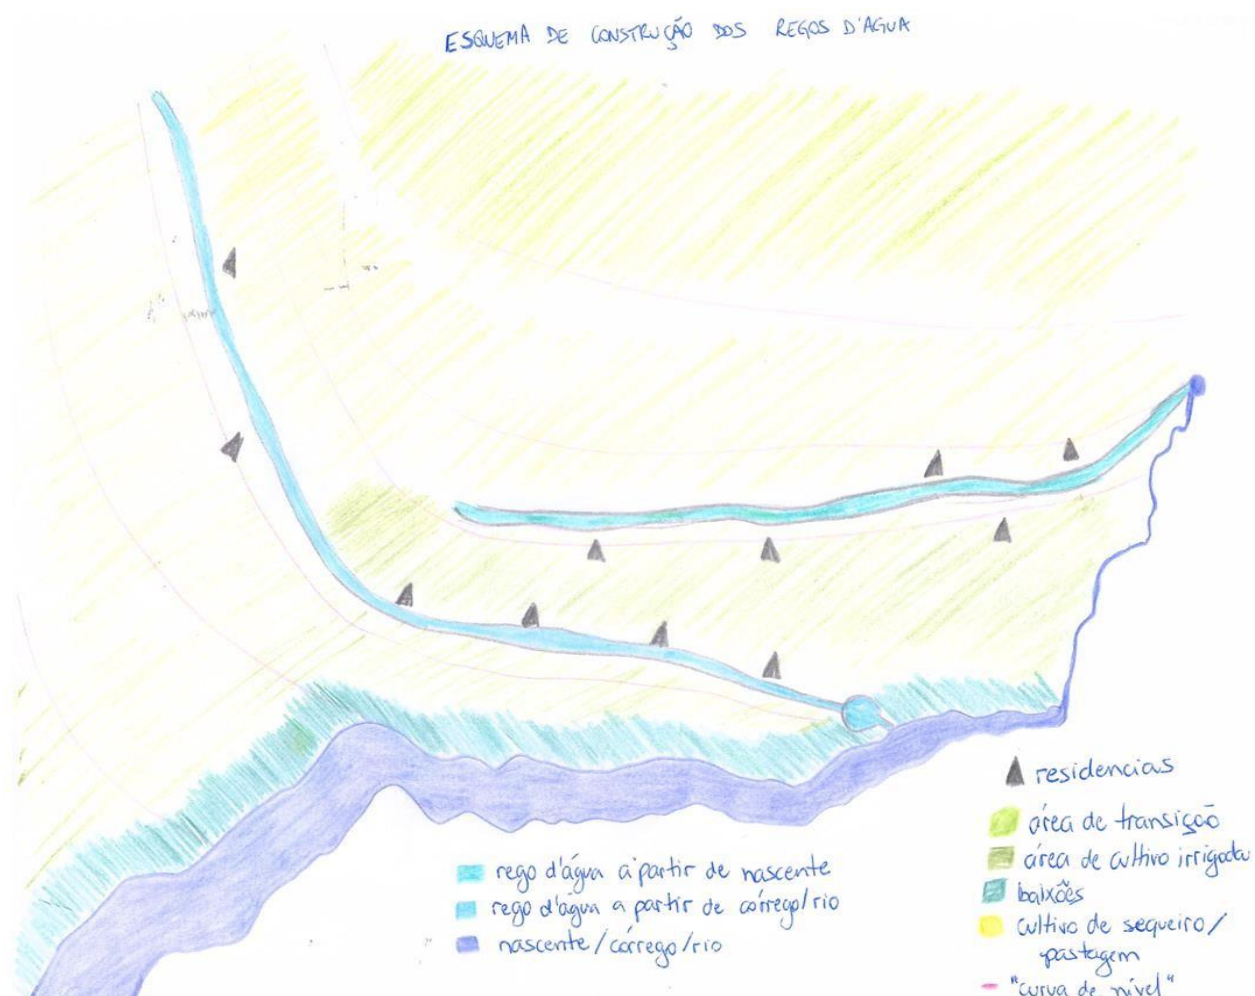 ESQUEMA DE CONSTRUÇÃO DOS REGOS D'AGUA
rego d'água a partir de nascente
rego d'água a partir de córrego/rio
nascente/córrego/rio
residencias
área de transição
área de cultivo irrigado
baixões
cultivo de sequeiro/
pastagem
"curva de nível"